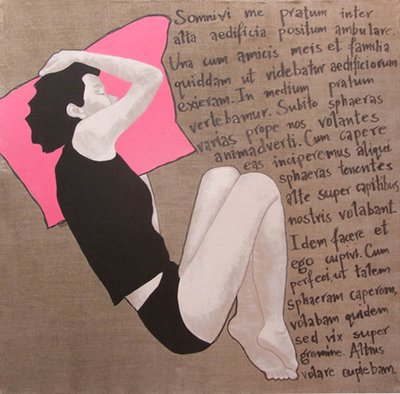 Somnivi me pratum inter
alta aedificia positum ambulare.
Una cum amicis meis et familia
quiddam ut videbatur aedificiorum
exieram. In medium pratum
verlebamur. Subito sphaeras
varias prope nos volantes
animadverti. Cum capere
eas inciperemus aliqui
sphaeras tenentes
alte super capitibus
nostris volabant
Idem facere et
ego cupivi. Cum
perfeci, ut talem
sphaeram caperem,
volabam quidem
sed vix super
gramine. Altius
volare cupiebam.